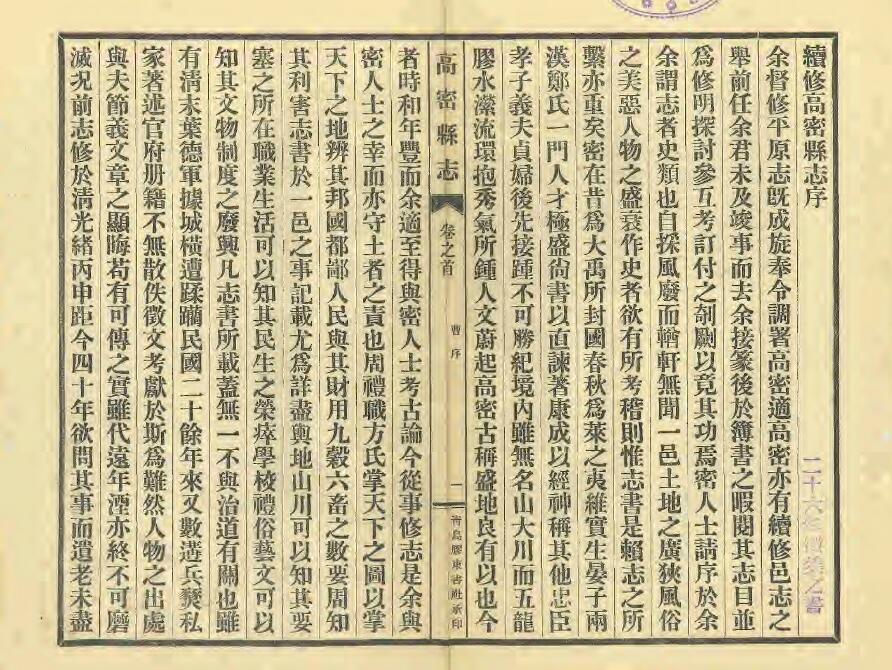 續修高密縣志序
余督修平原志既成旋奉令調署高密適高密亦有續修邑志之
舉前任余君未及竣事而去余接篆後於簿書之暇閱其志目並
爲修明探討參互考訂付之剞劂以竟其功焉密人士請序於余
余謂志者史類也自採風廢而輶軒無聞一邑土地之廣狹風俗
之美惡人物之盛衰作史者欲有所考稽則惟志書是賴志之所
繫亦重矣密在昔爲大禹所封國春秋爲萊之夷維實生晏子兩
漢鄭氏一門人才極盛尙書以直諫著康成以經神稱其他忠臣
孝子義夫貞婦後先接踵不可勝紀境內雖無名山大川而五龍
膠水瀠流環抱秀氣所鍾人文蔚起高密古稱盛地良有以也今
高密縣志
卷之首
曹序
一
靑島膠東書社承印
者時和年豐而余適至得與密人士考古論今從事修志是余與
密人士之幸而亦守土者之責也周禮職方氏掌天下之圖以掌
天下之地辨其邦國都鄙人民與其財用九穀六畜之數要周知
其利害志書於一邑之事記載尤爲詳盡輿地山川可以知其要
塞之所在職業生活可以知其民生之榮瘁學校禮俗藝文可以
知其文物制度之廢興凡志書所載蓋無一不與治道有關也雖
有淸末葉德軍據城橫遭蹂躪民國二十餘年來又數遘兵燹私
家著述官府册籍不無散佚徵文考獻於斯爲難然人物之出處
與夫節義文章之顯晦苟有可傳之實雖代遠年湮亦終不可磨
滅况前志修於淸光緖丙申距今四十年欲問其事而遺老未盡